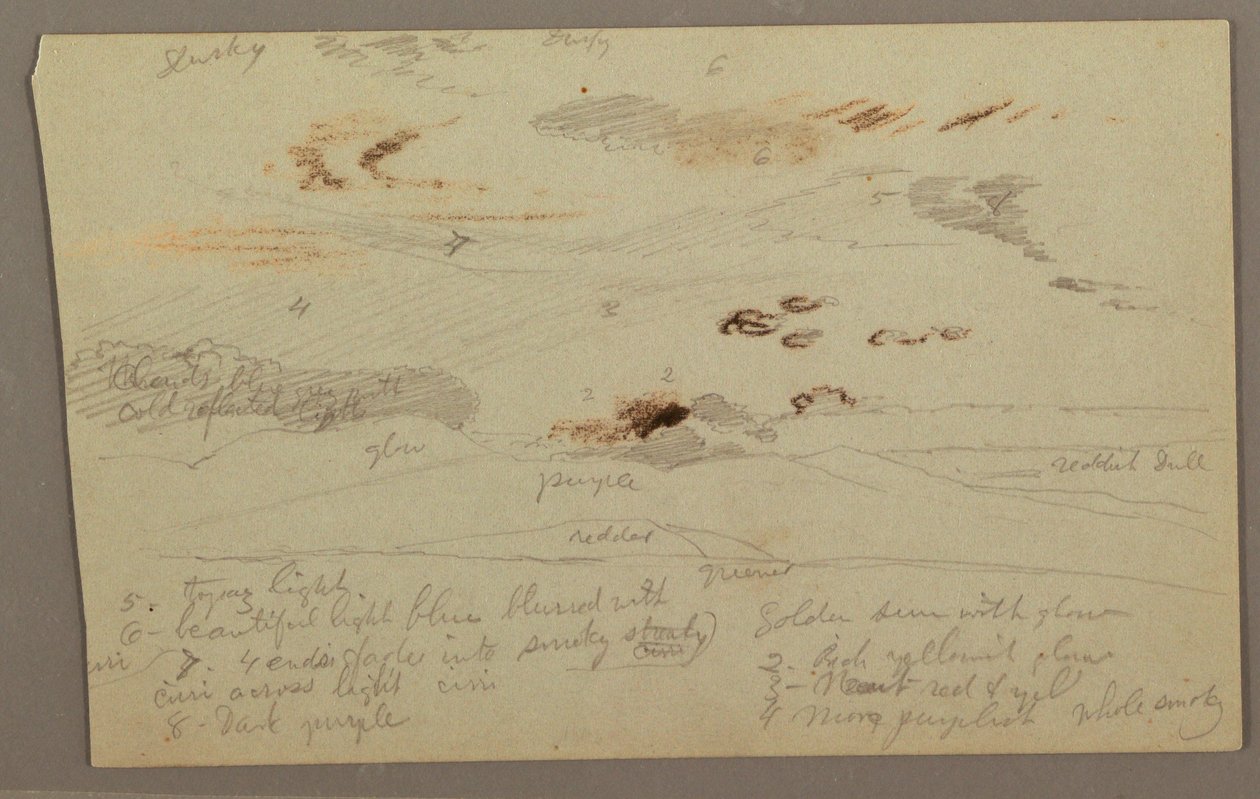 6
6
5
8
7
4
3
Clouds blue
cold reflected light
2
2
glow
reddish Dull
purple
redder
greener
5 - topaz light.
6 - beautiful light blue blurred with
7. 4 ends fades into smoky streaky)
cirri
cirri across light cirri
8 - Dark purple
Golden sun with glow
2 - Rich yellowish glow
3 - Neut red & yel
4 More purplish whole smoky